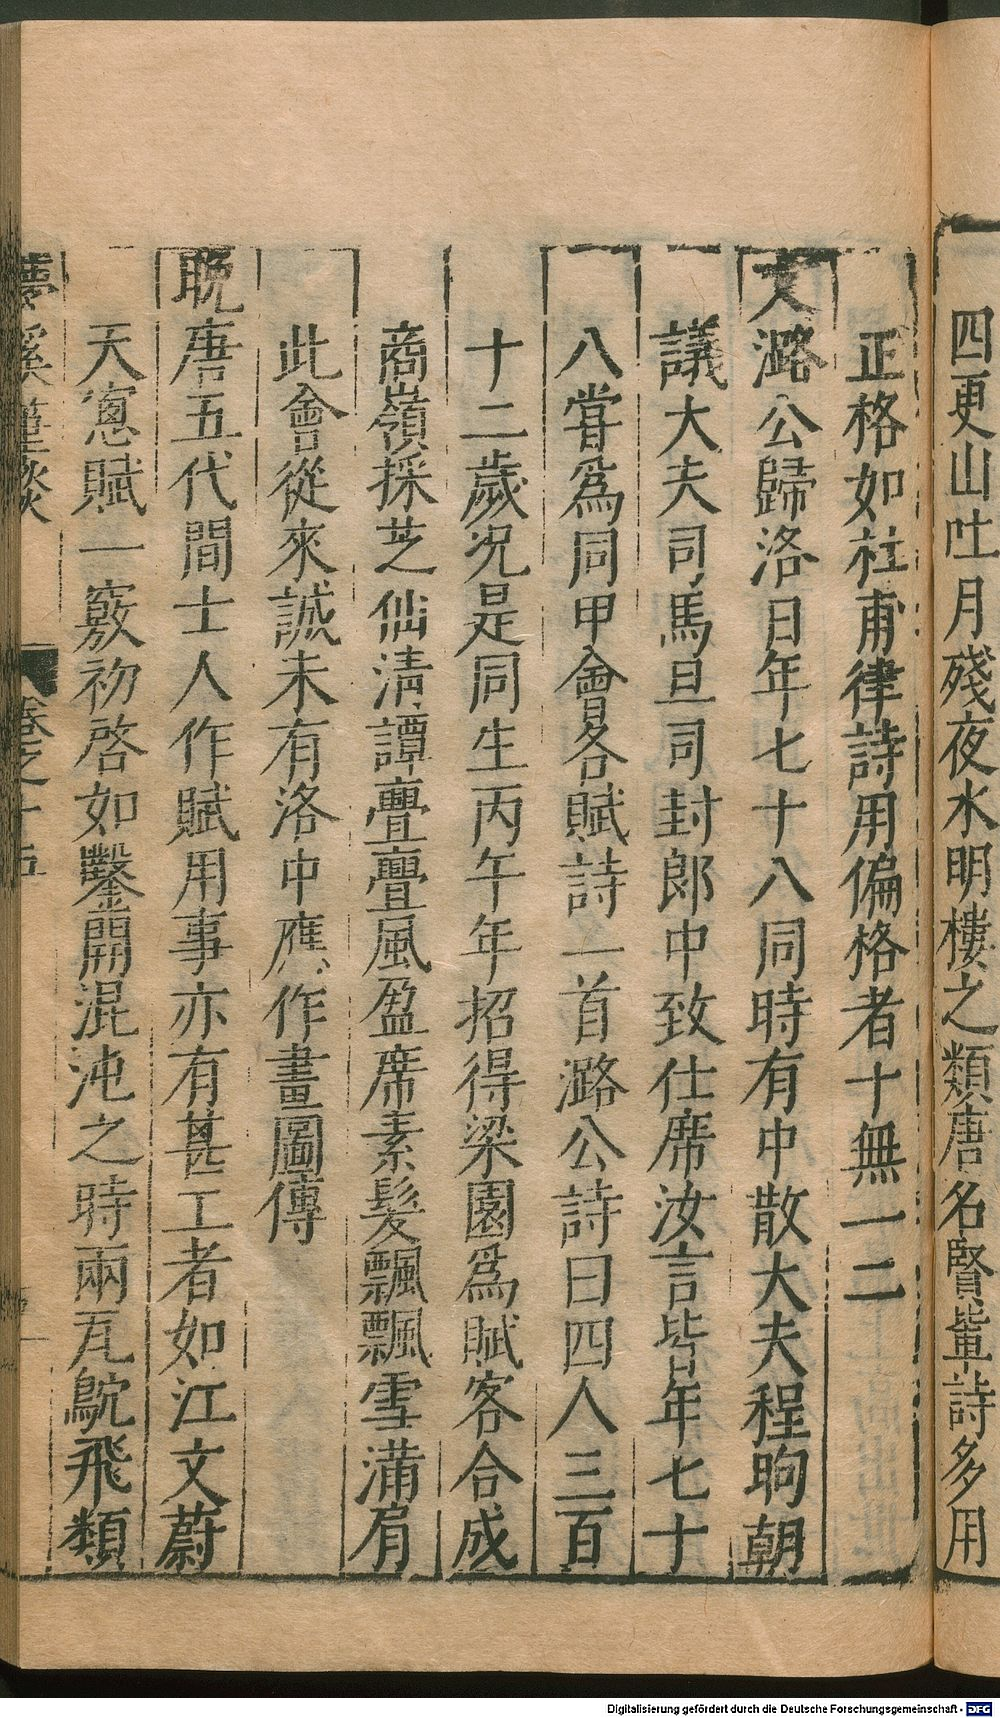 四更山吐月殘夜水明樓之類唐名賢輩詩多用
正格如杜甫律詩用偏格者十無一二
文潞公歸洛日年七十八同時有中散大夫程珦朝
議大夫司馬旦司封郎中致仕席汝言皆年七十
八嘗爲同甲會各賦詩一首潞公詩曰四人三百
十二歲况是同生丙午年招得梁園爲賦客合成
商嶺採芝仙清譚亹亹風盈席素髮飄飄雪滿肩
此會從來誠未有洛中應作畫圖傳
晚唐五代間士人作賦用事亦有甚工者如江文蔚
天窻賦一竅初啓如鑿開混沌之時兩瓦鴥飛類
夢溪筆談 卷之十五
Digitalisierung gefördert durch die Deutsche Forschungsgemeinschaft - DFG